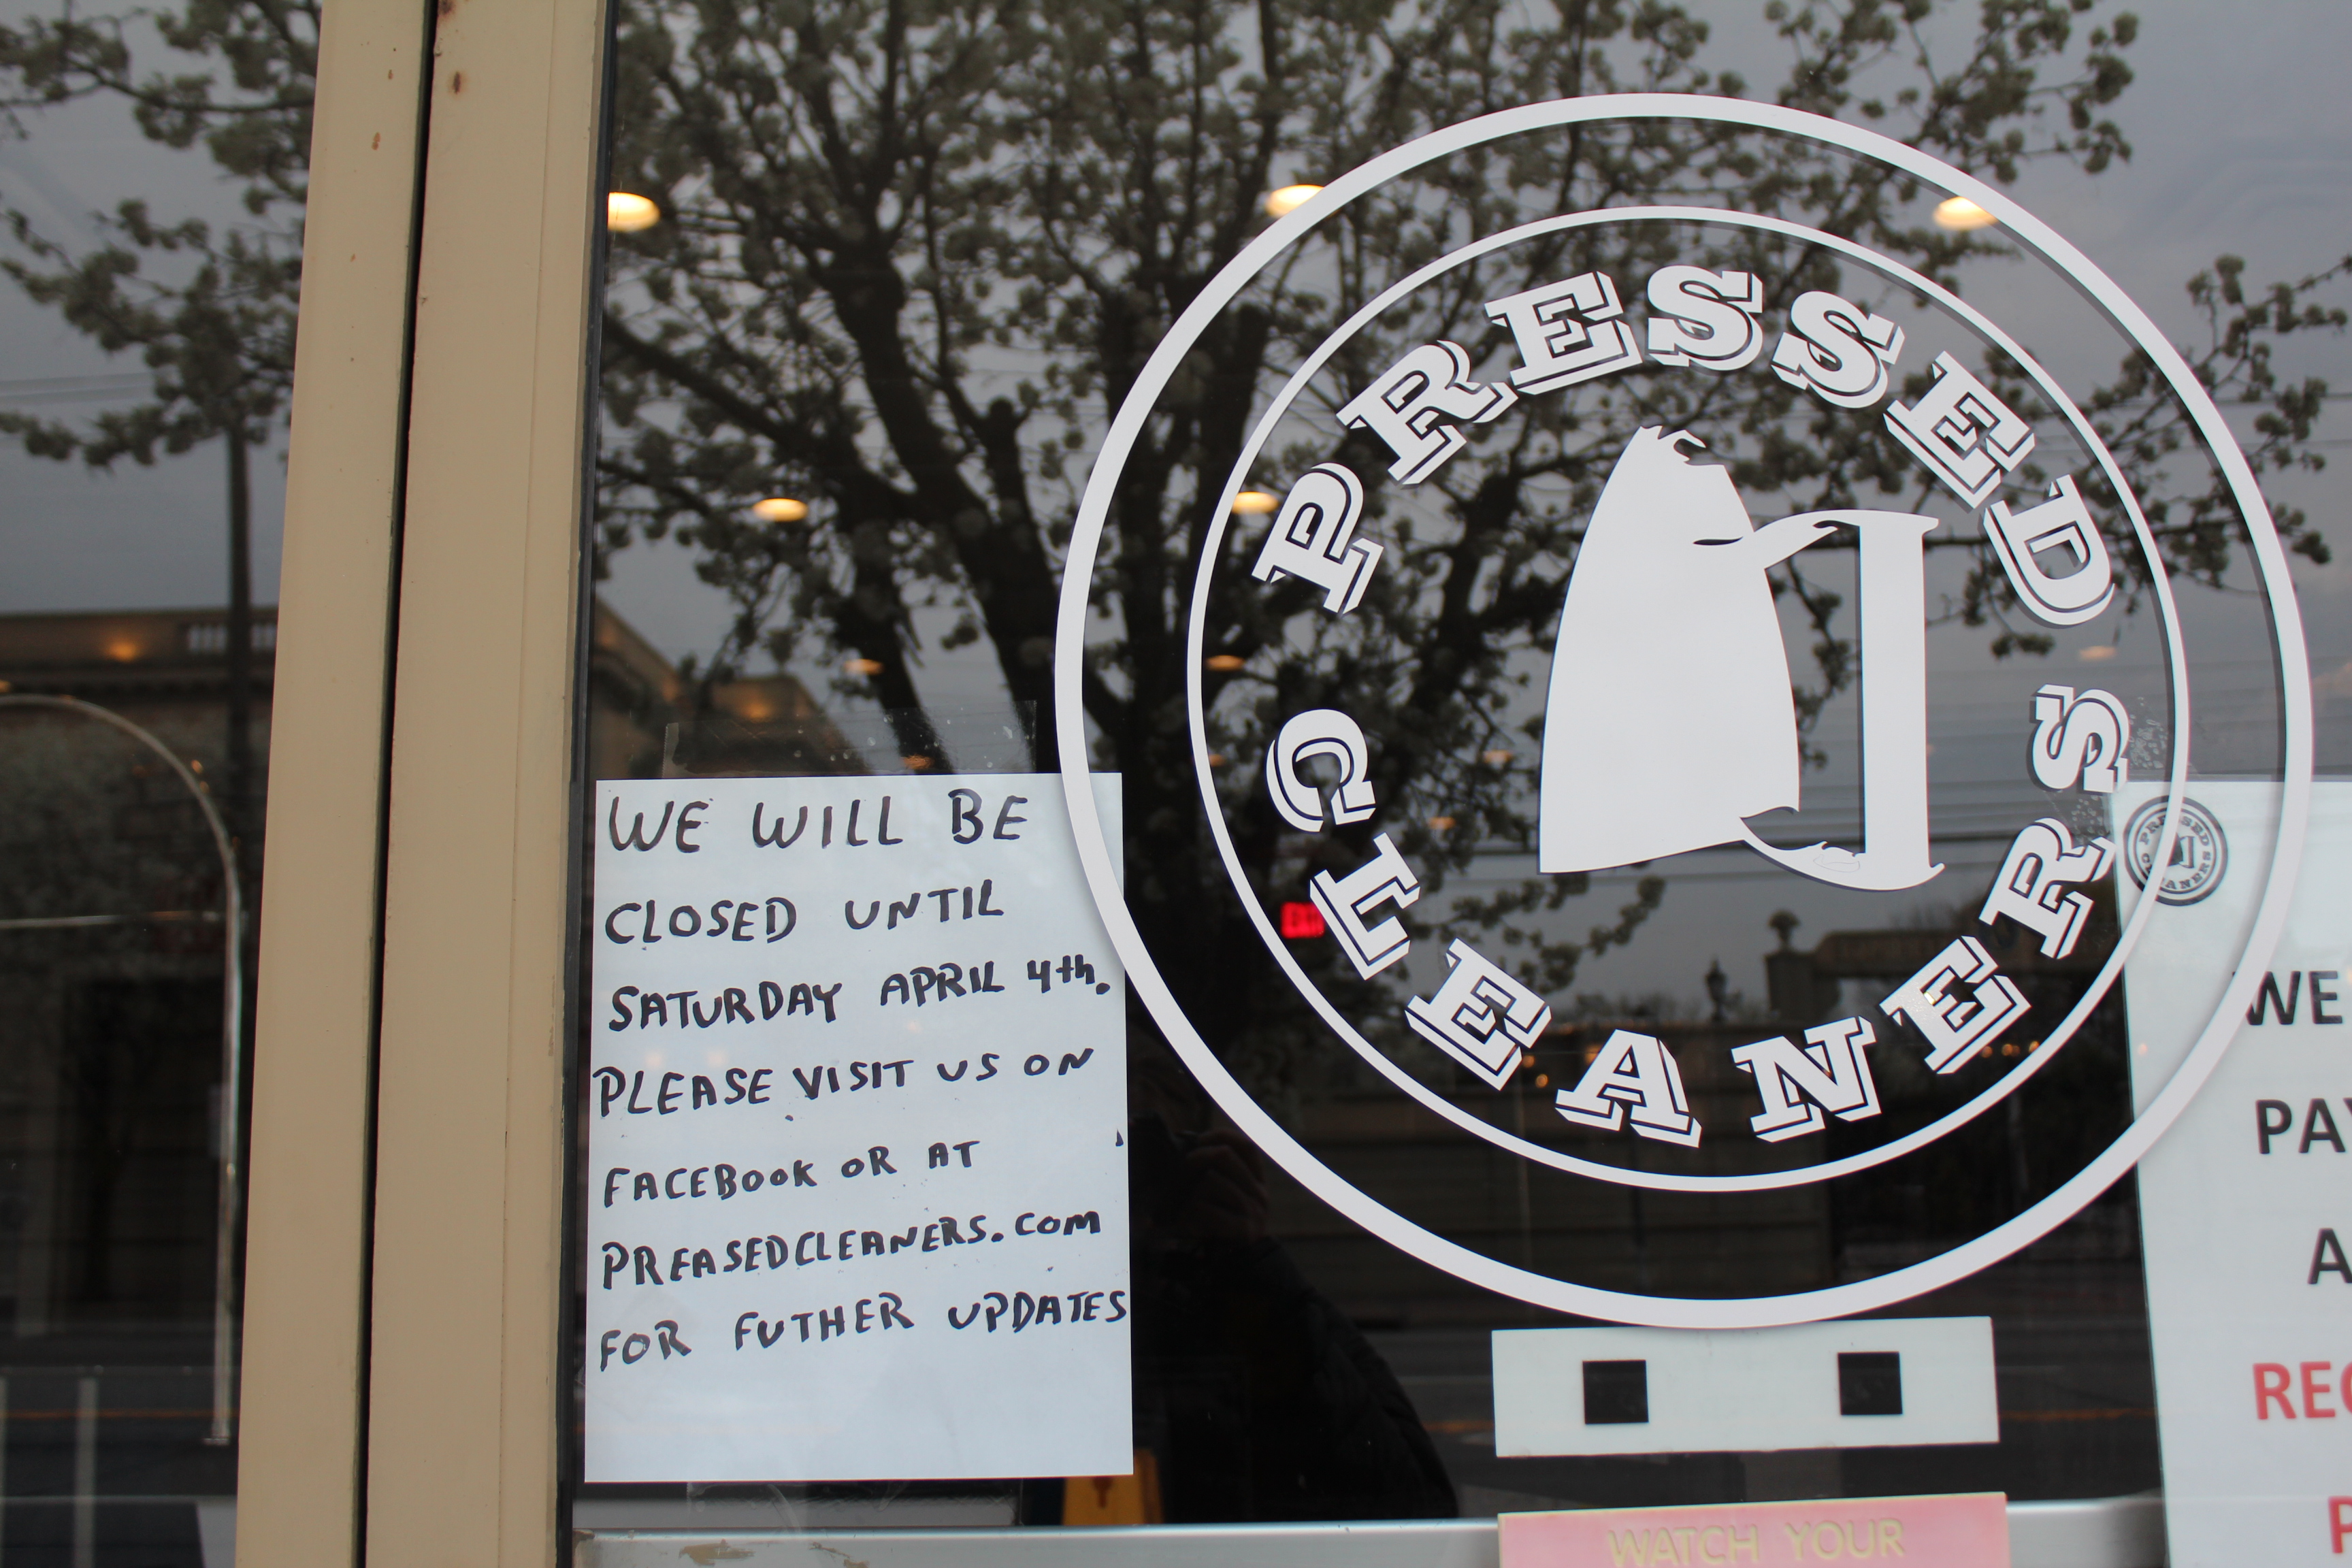 PRESSED
CLEANERS
WE WILL BE
CLOSED UNTIL
SATURDAY APRIL 4th.
PLEASE VISIT US ON
FACEBOOK OR AT
PREASEDCLEANERS.COM
FOR FUTHER UPDATES
EXIT
PRESSED
CLEANERS
WE
WATCH YOUR